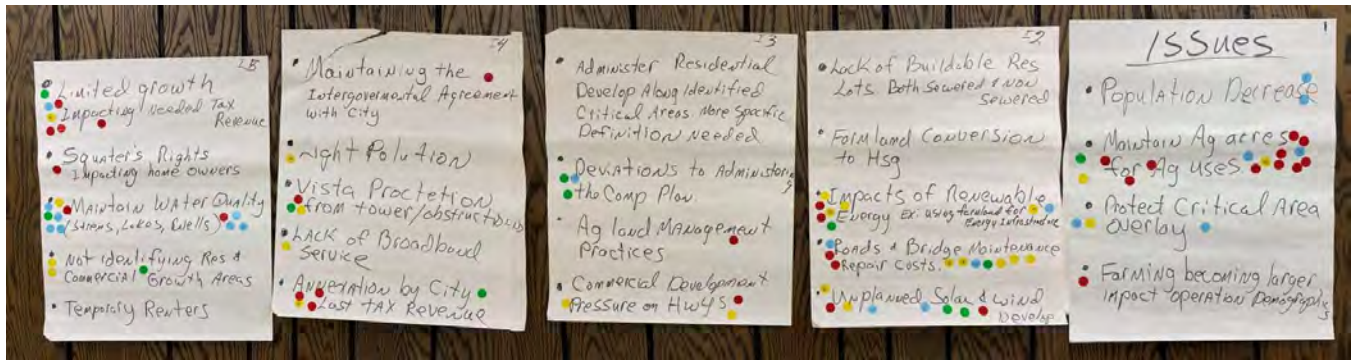 I5
• Limited growth
Impacting Needed Tax
Revenue
• Squater's Rights
Impacting home owners
• Maintain Water Quality
(Lakes, Wells)
• Not identifying Res &
Commercial Growth Areas
• Temporary Renters
I4
• Maintaining the
Intergovernmental Agreement
with City
• Light Polution
• Vista Proctetion
from tower/obstructions
• Lack of Broadband
Service
• Annexation by City
Lost TAX Revenue
I3
• Administer Residential
Develop Along Identified
Critical Areas. More Specific
Definition Needed
• Deviations to Administering
the Comp Plan.
• Ag land Management
Practices
• Commercial Development
Pressure on HWYS
I2
• Lack of Buildable Res
Lots Both Sewered & Non
Sewered
• Farmland Conversion
to Hsg
• Impacts of Renewable
Energy Ex: using farmland for
Energy Infrastructure
• Roads & Bridge Maintenance
Repair Costs.
• Unplanned Solar & Wind
Develop
1
Issues
• Population Decrease
• Maintain Ag acres
for Ag uses.
• Protect Critical Area
overlay
• Farming becoming larger
impact operation Demographics